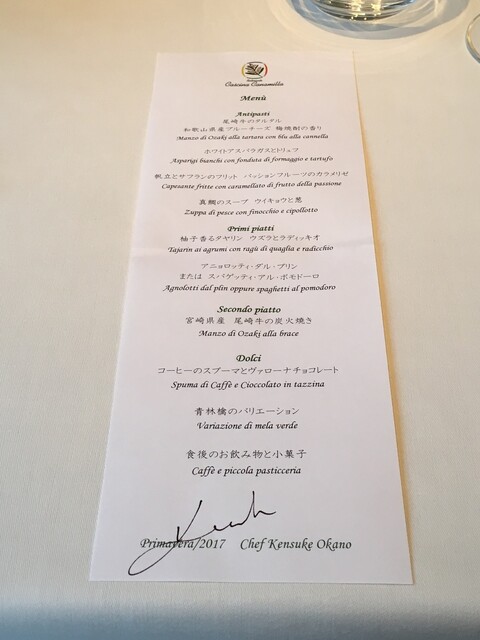 Cascina Canamilla
Menù
Antipasti
尾崎牛のタルタル
和歌山県産ブルーチーズ 梅焼酎の香り
Manzo di Ozaki alla tartara con blu alla cannella
ホワイトアスパラガスとトリュフ
Asparigi bianchi con fonduta di formaggio e tartufo
帆立とサフランのフリット パッションフルーツのカラメリゼ
Capesante fritte con caramellato di frutto della passione
真鯛のスープ ウイキョウと葱
Zuppa di pesce con finocchio e cipollotto
Primi piatti
柚子香るタヤリン ウズラとラディッキオ
Tajarin ai agrumi con ragù di quaglia e radicchio
アニョロッティ・ダル・プリン
または スパゲッティ・アル・ポモドーロ
Agnolotti dal plin oppure spaghetti al pomodoro
Secondo piatto
宮崎県産 尾崎牛の炭火焼き
Manzo di Ozaki alla brace
Dolci
コーヒーのスプーマとヴァローナチョコレート
Spuma di Caffè e Cioccolato in tazzina
青林檎のバリエーション
Variazione di mela verde
食後のお飲み物と小菓子
Caffè e piccola pasticceria
Primavera/2017 Chef Kensuke Okano